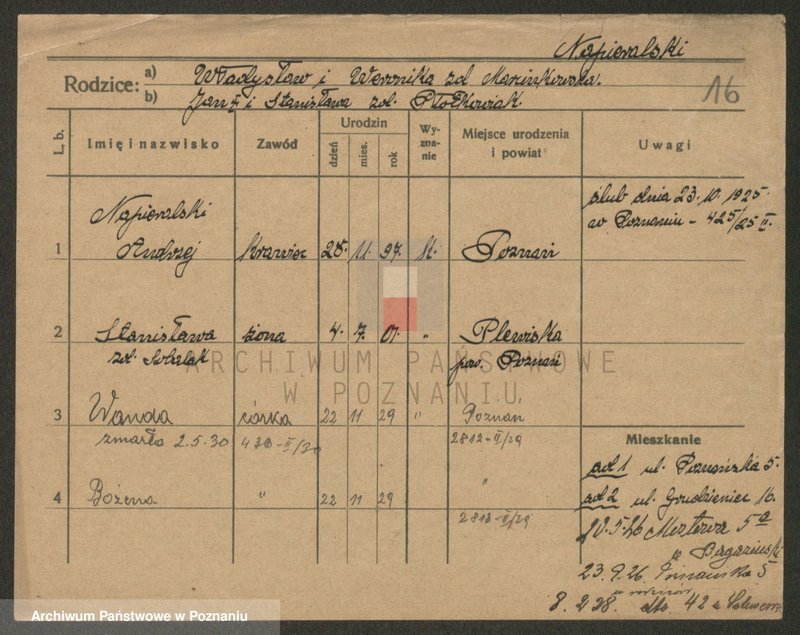 Napieralski
Rodzice: a) Władysław i Weronika zd Marcinkowska.
b) Jan i Stanisława zd. Ptotkowiak.
16
L. b.
Imię i nazwisko
Zawód
Urodzin
dzień
mies.
rok
Wy-
zna-
nie
Miejsce urodzenia
i powiat
Uwagi
ślub dnia 23.10.1925
w Poznaniu - 425/25 II.
Napieralski
1 Andrzej krawiec 28. 11. 97. rk. Poznań
2 Stanisława żona 4. 7. 01. " Plewiska
zd. pow. Poznań
ARCHIWUM PAŃSTWOWE
W POZNANIU
3 Wanda córka 22 11 29 " Poznań
zmarła 2.5.30 430-II/30 2812-II/29
4 Bożena " 22 11 29 "
2813-II/29
Mieszkanie
ad 1 ul. Poznańska 5.
ad 2 ul. Grudzieniec 16.
20.5.26 5a
u
23.9.26. Poznańska 5
u rodziców
8.2.28. 42 u
Archiwum Państwowe w Poznaniu